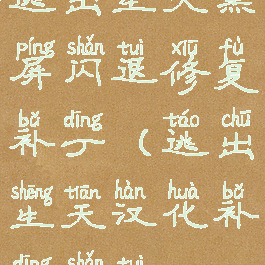 逃出生天黑
píng shǎn tuì xiū fù
屏闪退修复
bǔ dīng táo chū
补丁（逃出
shēng tiān hàn huà bǔ
生天汉化补
dīng shǎn tuì